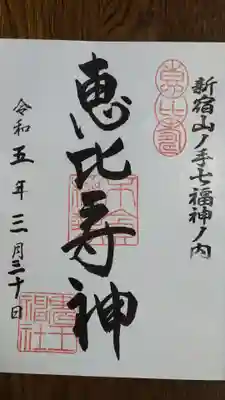 新宿山ノ手七福神ノ内
恵比寿
恵比寿神
令和五年三月三十日